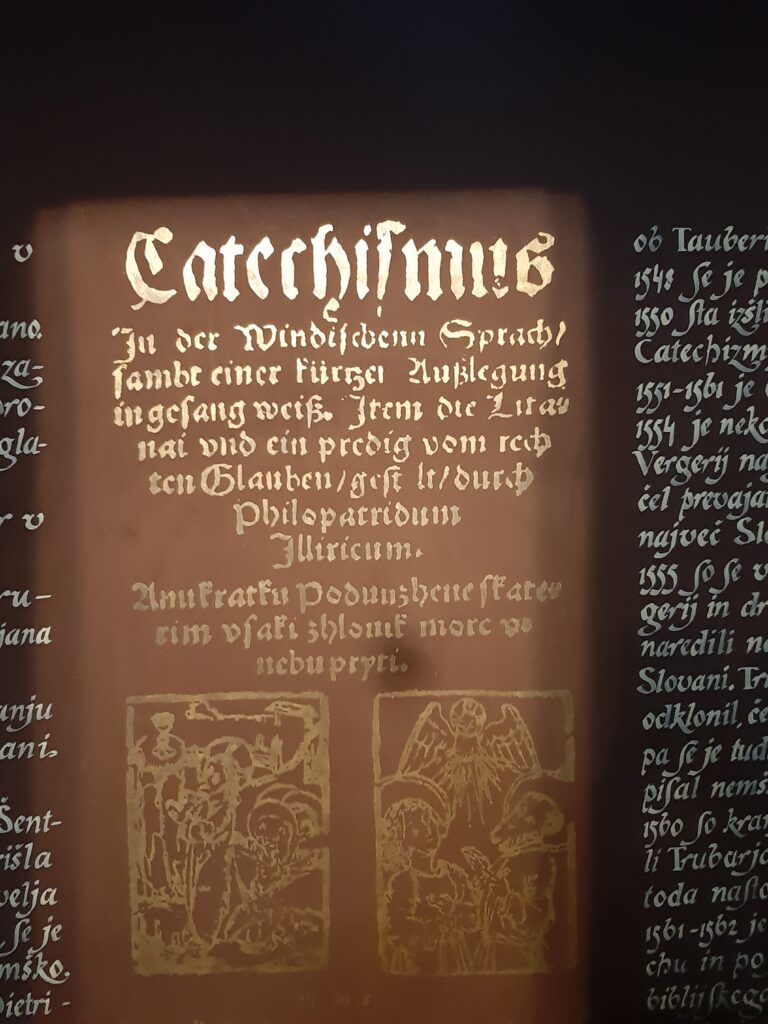 v
ano.
za-
gla-
v
ru-
jana
anju
ani.
Šent-
rišla
velja
ſe je
mško.
Dietri-
Catechiſmus
In der Windiſchenn Sprach/
ſambt einer kürtzer Außlegung
in geſang weiß. Item die Lita⸗
nai vnd ein predig vom rech
ten Glauben/geſt lt/durch
Philopatridum
Illiricum.
Anu kratku Poduuzhene ſkate⸗
rim vſaki zhlouik more vo
nebu pryti.
ob Tauberi
1548 ſe je p
1550 ſta izšli
Catechizm
1551-1561 je
1554 je neko
Vergerij na
čel prevaja
največ Slo
1555 ſo ſe v
gerij in dr
naredili na
Slovani. Tru
odklonil, če
pa ſe je tud
piſal nemš
1560 ſo kran
li Trubarja
toda naſto
1561-1562 je
chu in po
bibliſkega